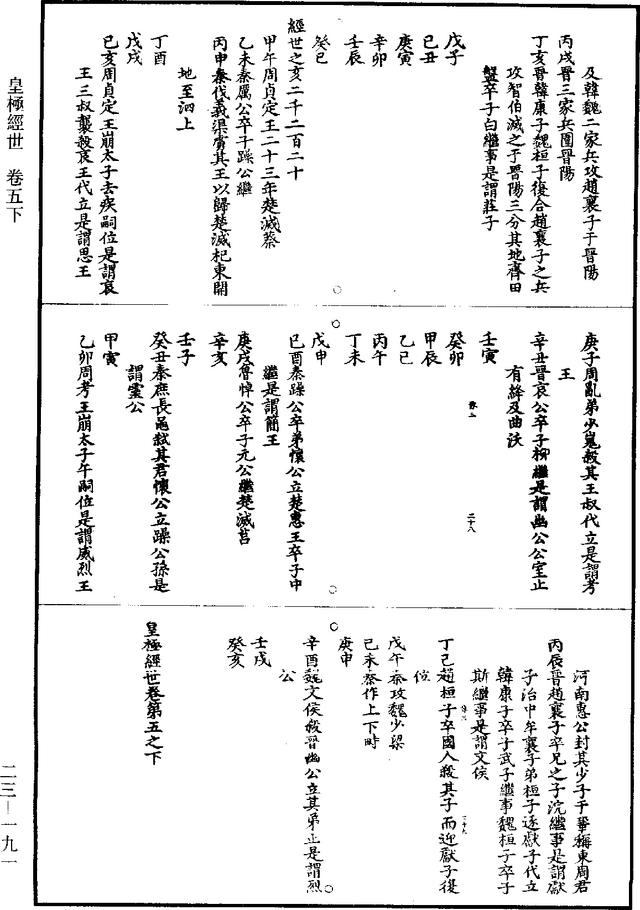 皇極經世　卷五下
及韓魏二家兵攻趙襄子于晉陽
丙戌晉三家兵圍晉陽
丁亥晉韓康子魏桓子復合趙襄子之兵
攻智伯滅之于晉陽三分其地齊田
盤卒子白繼事是謂莊子
戊子
己丑
庚寅
辛卯
壬辰
癸巳
經世之亥二千二百二十
甲午周貞定王二十三年楚滅蔡
乙未秦厲公卒子躁公繼
丙申秦伐義渠虜其王以歸楚滅杞東開
地至泗上
丁酉
戊戌
己亥周貞定王崩太子去疾嗣位是謂哀
王三叔襲殺哀王代立是謂思王
庚子周亂弟少嵬殺其王叔代立是謂考
王
辛丑晉哀公卒子柳繼是謂幽公公室止
有絳及曲沃
壬寅
癸卯
甲辰
乙巳
丙午
丁未
戊申
己酉秦躁公卒弟懷公立楚惠王卒子中
繼是謂簡王
庚戌魯悼公卒子元公繼楚滅莒
辛亥
壬子
癸丑秦庶長鼂弒其君懷公立躁公孫是
謂靈公
甲寅
乙卯周考王崩太子午嗣位是謂威烈王
二十八
河南惠公封其少子于鞏稱東周君
丙辰晉趙襄子卒兄之子浣繼事是謂獻
子治中牟襄子弟桓子逐獻子代立
韓康子卒子武子繼事魏桓子卒子
斯繼事是謂文侯
丁巳趙桓子卒國人殺其子而迎獻子復
位
戊午秦攻魏少梁
己未秦作上下畤
庚申
辛酉魏文侯殺晉幽公立其弟止是謂烈
公
壬戌
癸亥
皇極經世卷第五之下
二三—一九一